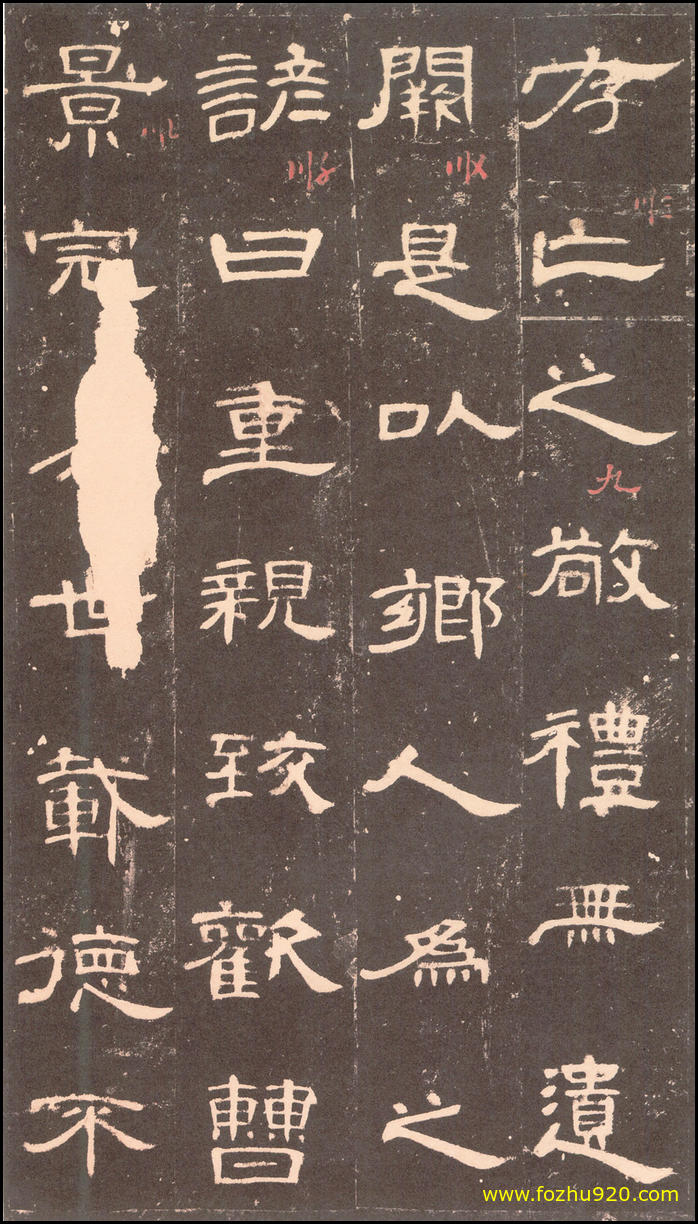 存亡之敬禮無遺
闕是以鄉人爲之
諺曰重親致歡曹
景完世載德不
九
www.fozhu920.com